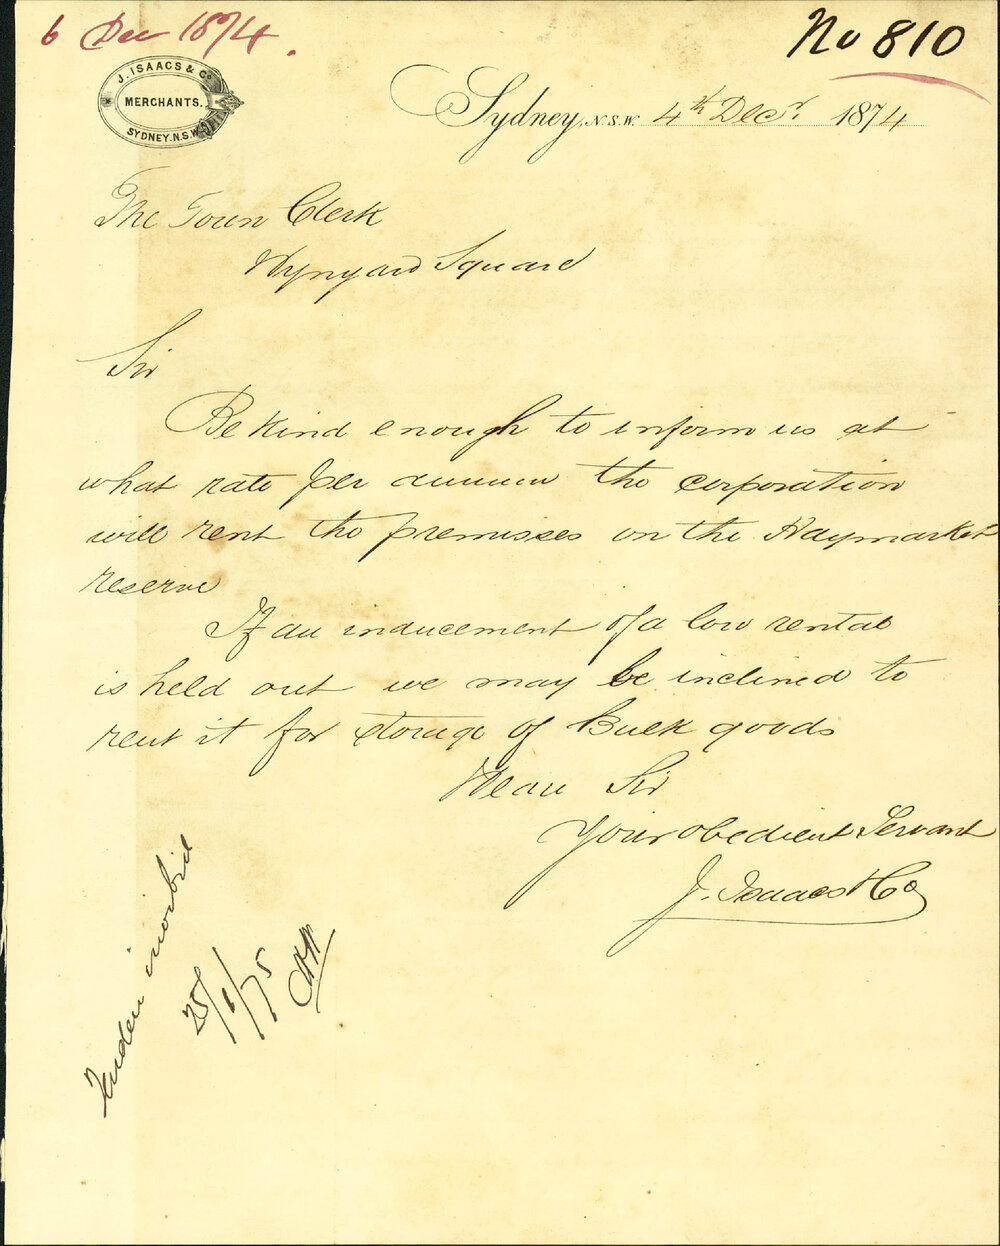 6 Dec 1874.
No 810
J. ISAACS & Co
MERCHANTS.
SYDNEY. N.S.W.
Sydney, N.S.W. 4th Decr 1874
The Town Clerk
Wynyard Square
Sir
Be kind enough to inform us at
what rate per annum the corporation
will rent the premises on the Haymarket
reserve
If an inducement of a low rental
is held out we may be inclined to
rent it for storage of Bulk goods
Dear Sir
Your obedient Servant
J. Isaacs & Co
Tenders invited
25/1/75